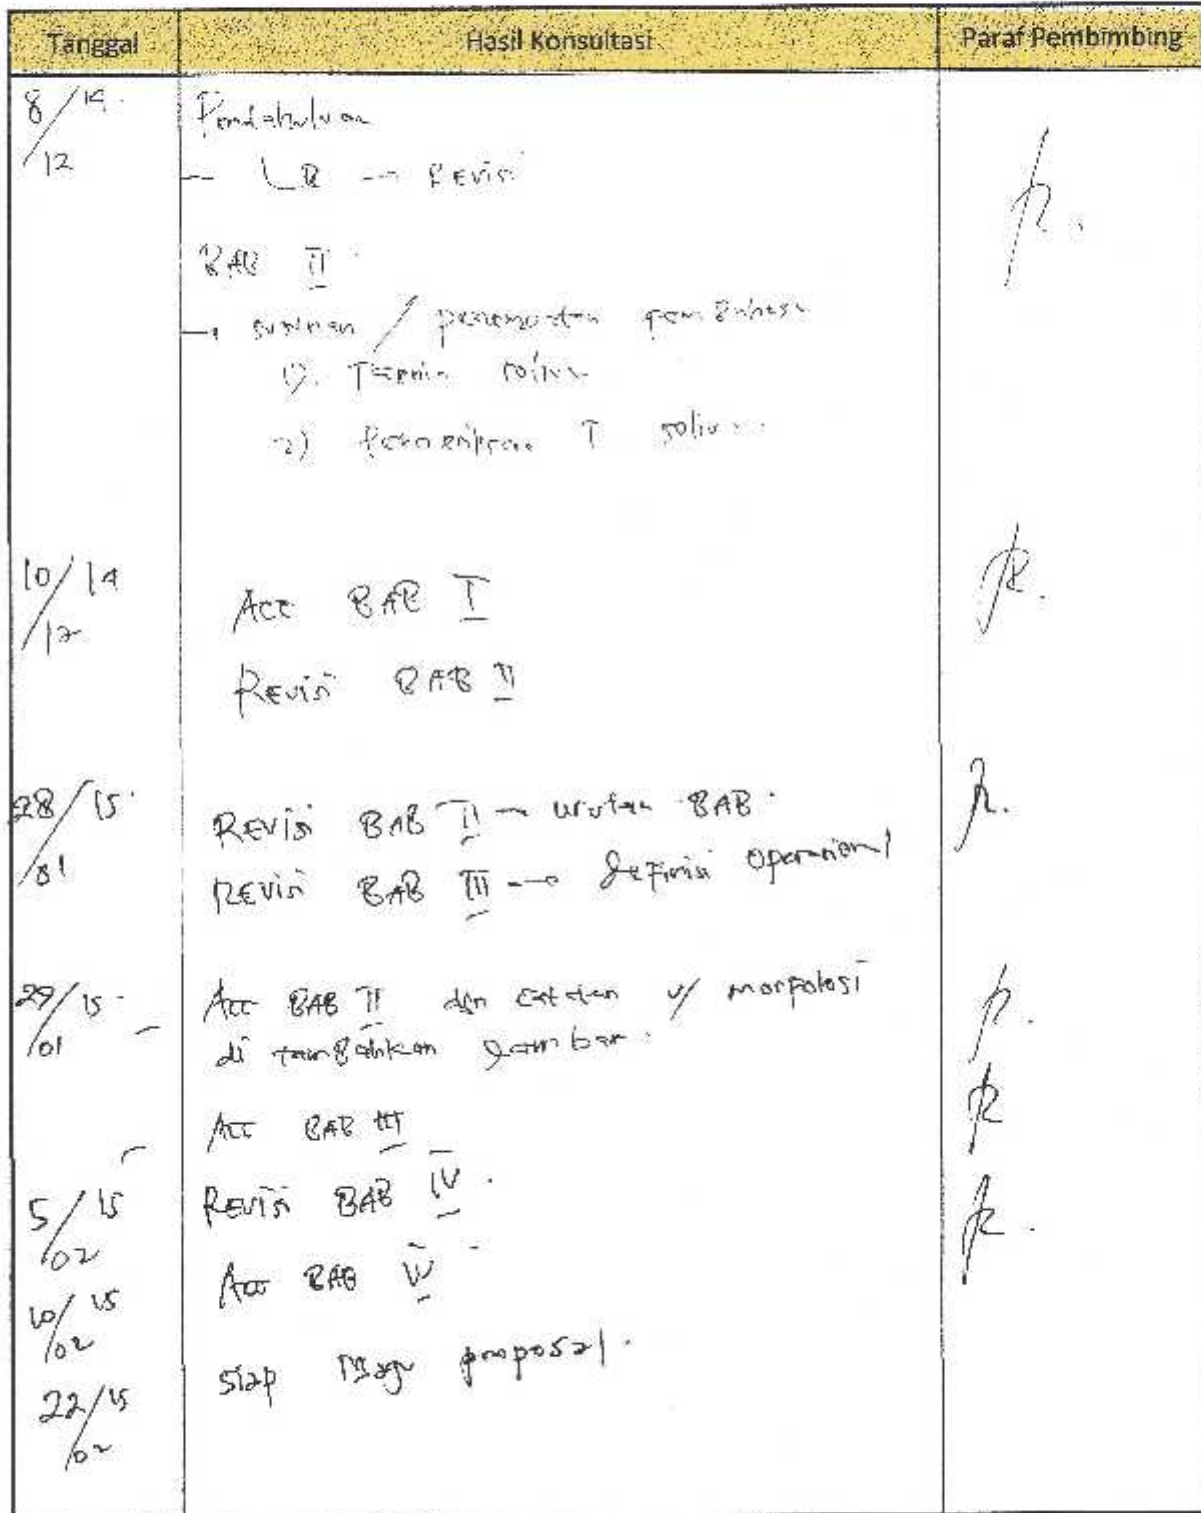 Tanggal Hasil Konsultasi Paraf Pembimbing
8/14
12
Pendahuluan
- LB -- Revisi
BAB II
→ susunan / penempatan
1). Taenia solium
2) T solium
10/14
12
Acc BAB I
Revisi BAB II
28/15
01
Revisi BAB II → urutan BAB
Revisi BAB III → Definisi Operasional
29/15
01
- Acc BAB II dgn catatan u/ morfologi
di tambahkan gambar
- Acc BAB III
5/15
02
Revisi BAB IV.
10/15
02
Acc BAB IV
22/15
02
siap maju proposal.